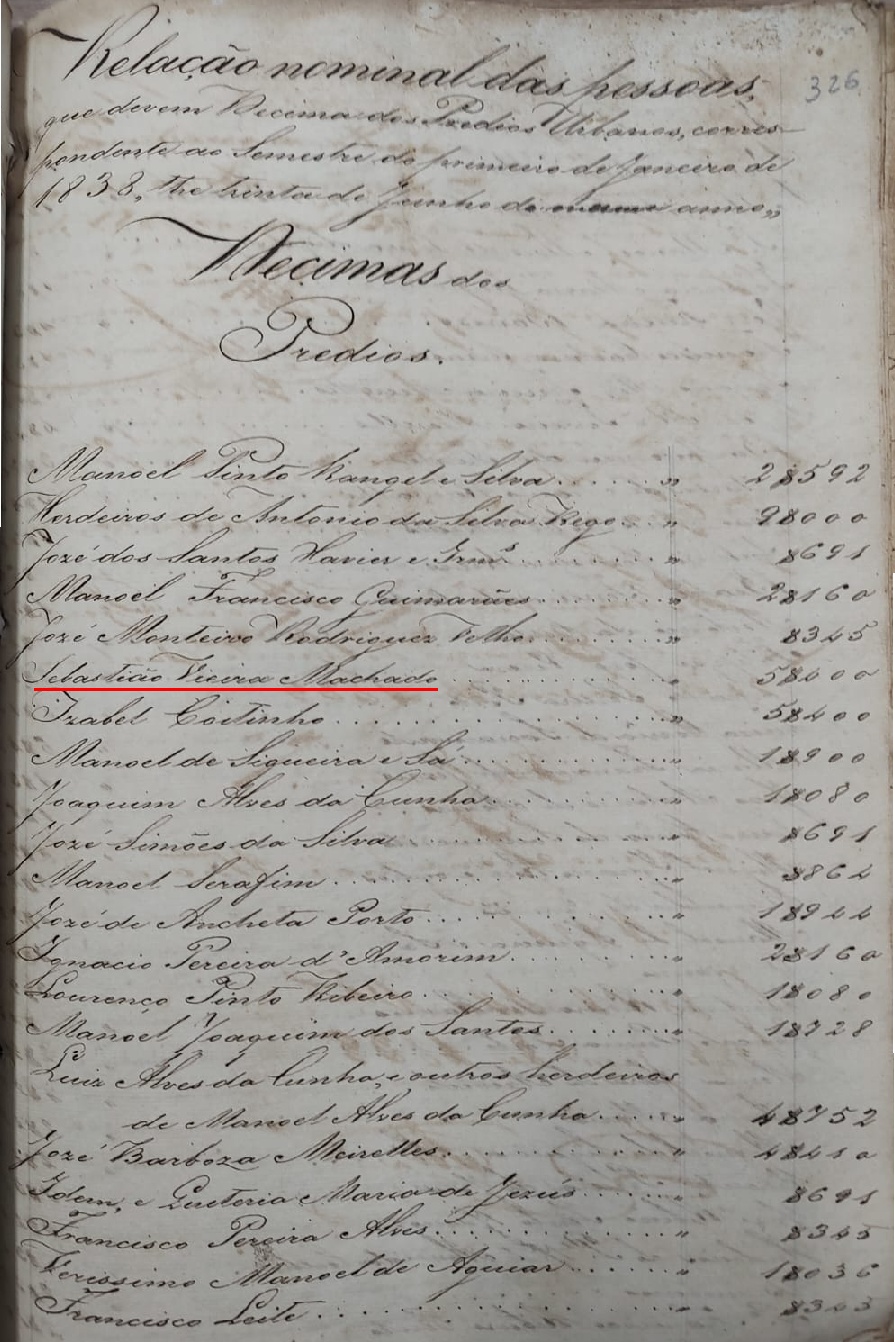 326
Relação nominal das pessoas,
que devem Decima dos Predios Urbanos, corres-
pondente ao Semestre do primeiro de Janeiro de
1838, the trinta de Junho do mesmo anno,,
Decimas dos
Predios.
Manoel Pinto Rangel e Silva . . . . . . " 2$592
Herdeiros de Antonio da Silva Rego . . " 9$000
Jozé dos Santos Xavier e Irmº . . . . . . " $691
Manoel Francisco Guimarães . . . . . . " 2$160
Jozé Monteiro Rodriguez Velho . . . . . " $345
Sebastião Vieira Machado . . . . . . . . " 5$400
Izabel Coitinho . . . . . . . . . . . . " 5$400
Manoel de Siqueira e Sá . . . . . . . . " 1$900
Joaquim Alves da Cunha . . . . . . . . " 1$080
Jozé Simões da Silva . . . . . . . . . . " $691
Manoel Serafim . . . . . . . . . . . . " $864
Jozé de Ancheta Porto . . . . . . . . . " 1$944
Ignacio Pereira d'Amorim . . . . . . . . " 2$160
Lourenço Pinto Ribeiro . . . . . . . . . " 1$080
Manoel Joaquim dos Santos . . . . . . . " 1$728
Luiz Alves da Cunha, e outros herdeiros
de Manoel Alves da Cunha . . . . " 4$752
Jozé Barboza Meirelles . . . . . . . . . " 4$410
Idem, e Quiteria Maria de Jezús . . . . . " $691
Francisco Pereira Alves . . . . . . . . . " $345
Verissimo Manoel de Aguiar . . . . . . . " 1$036
Francisco Leite . . . . . . . . . . . . " $345